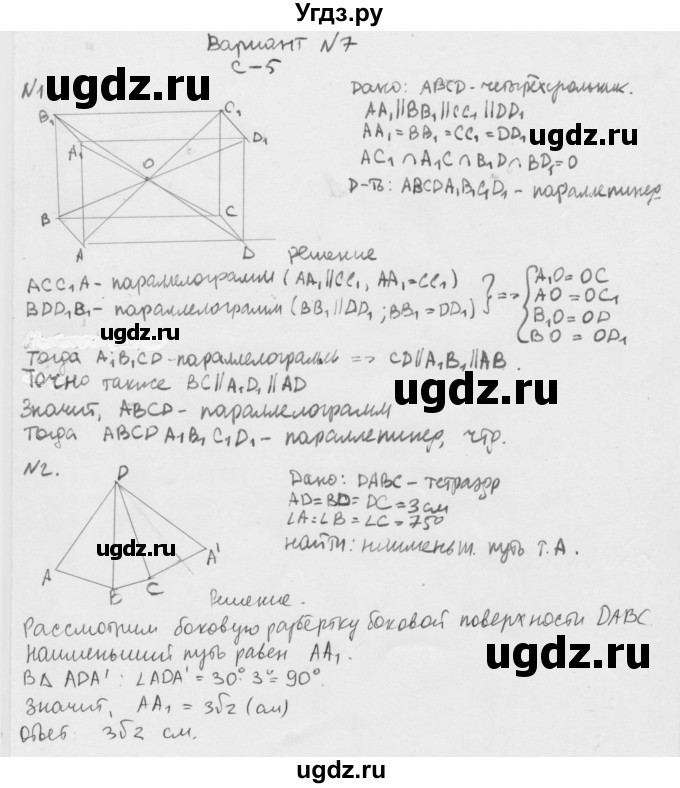 Угдз.ру
Вариант N7
С-5
N1
Дано: ABCD - четырёхугольник.
AA₁ || BB₁ || CC₁ || DD₁
AA₁ = BB₁ = CC₁ = DD₁
AC₁ ∩ A₁C ∩ B₁D ∩ BD₁ = O
Д-ть: ABCDA₁B₁C₁D₁ - параллепипер
B₁ C₁ A₁ D₁ O B C A D
решение
ACC₁A - параллелограмм (AA₁ || CC₁, AA₁ = CC₁)
BDD₁B₁ - параллелограмм (BB₁ || DD₁; BB₁ = DD₁) } => { A₁O = OC
AO = OC₁
B₁O = OD
BO = OD₁
Тогда A₁B₁CD - параллелограммь => CD || A₁B₁ || AB.
Точно также BC || A₁D₁ || AD
Значит, ABCD - параллелограмм
Тогда ABCDA₁B₁C₁D₁ - параллепипер, чтр.
N2.
Дано: DABC - тетраэдр
AD = BD = DC = 3 см
∠A = ∠B = ∠C = 75°
найти: наименьш. путь т. A.
D A B C A'
Решение.
Рассмотрим боковую развёртку боковой поверхности DABC
Наименьший путь равен AA₁.
В Δ ADA': ∠ADA' = 30°·3 = 90°.
Значит, AA₁ = 3√2 (см)
Ответ 3√2 см.
ugdz.ru
ugdz.ru
ugdz.ru
ugdz.ru
ugdz.ru
ugdz.ru
ugdz.ru
ugdz.ru
ugdz.ru
ugdz.ru